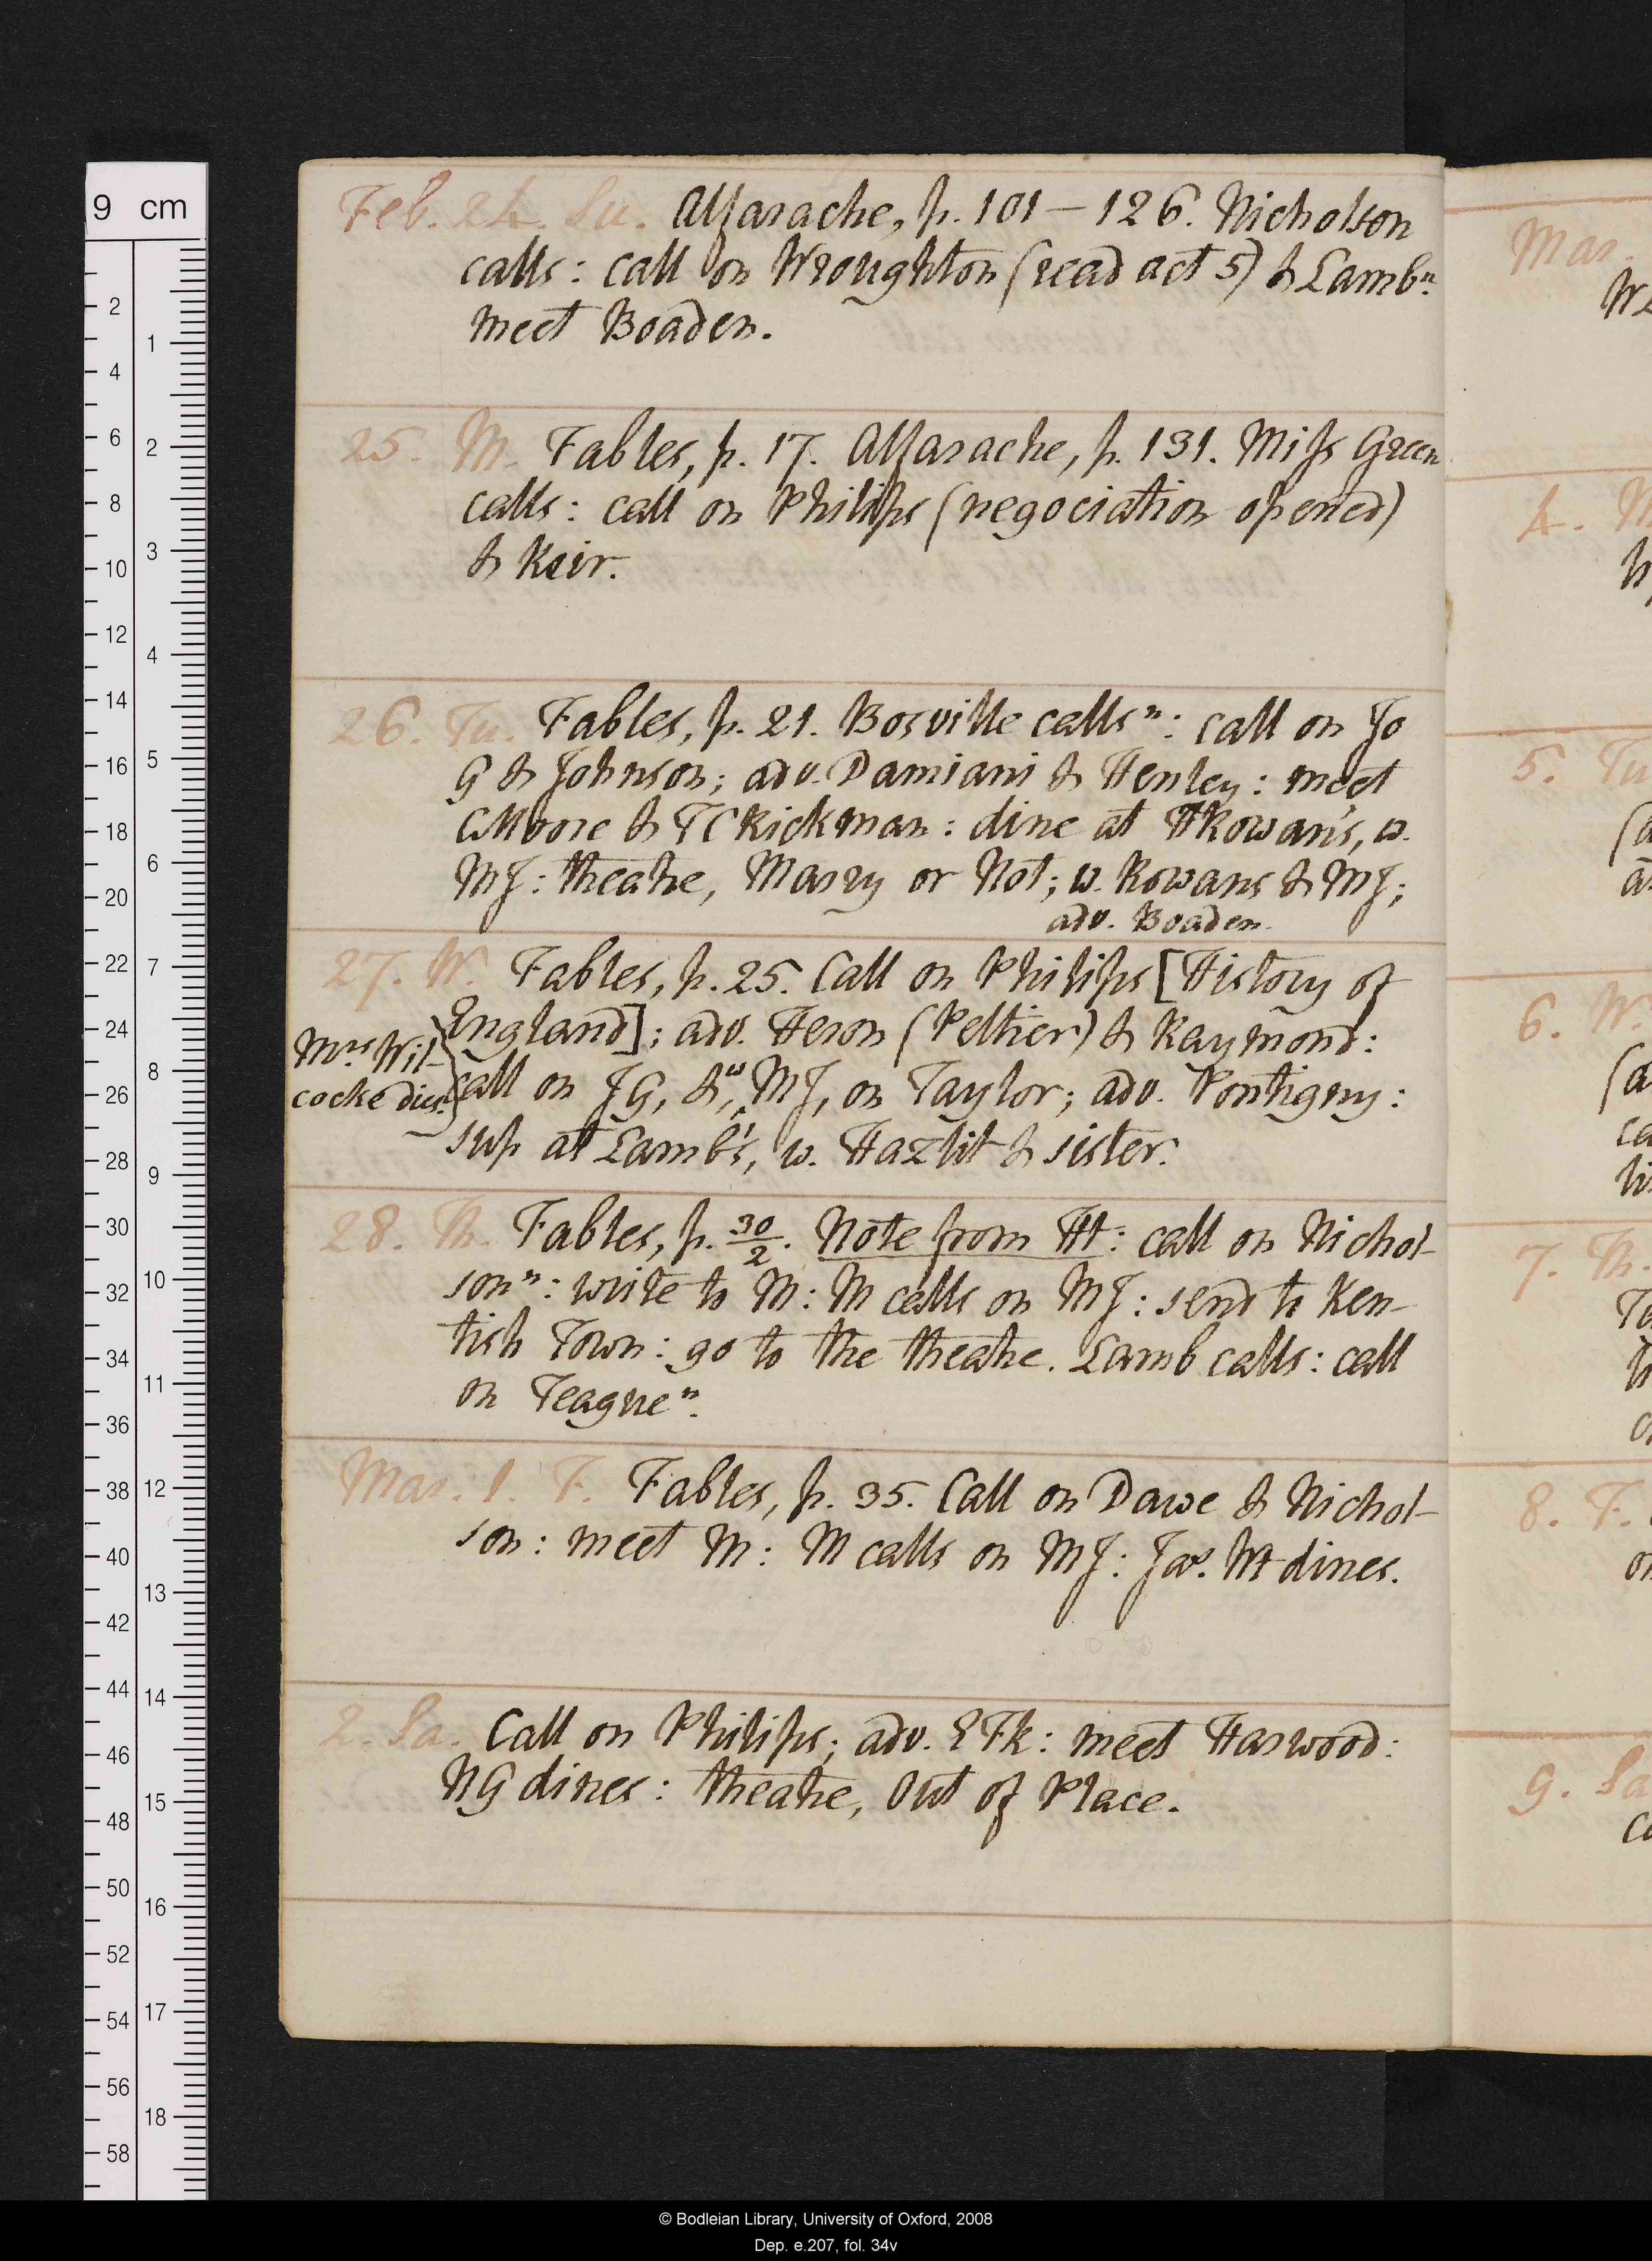 9 cm
Feb. 24. Su. Alfarache, p. 101 – 126. Nicholson
calls: call on Wroughton (read act 5) & Lambⁿ:
meet Boaden.
25. M. Fables, p. 17. Alfarache, p. 131. Miss Green
calls: call on Philips (negociation opened)
& Keir.
26. Tu. Fables, p. 21. Bosville callsⁿ: call on Jo
G & Johnson; adv. Damiani & Henley: meet
CMoore & TCRickman: dine at HRowan's, w.
MJ: theatre, Marry or Not; w. Rowans & MJ;
adv. Boaden.
27. W. Fables, p. 25. Call on Philips [History of
England]; adv. Heron (Peltier) & Raymond:
Mrs Wil-
cocke dies.
call on JG, &, w MJ, on Taylor; adv. Pontigny:
sup at Lamb's, w. Hazlit & sister.
28. Th. Fables, p. 30/2. Note from Ht: call on Nichol-
sonⁿ: write to M: M calls on MJ: send to Ken-
tish Town: go to the theatre. Lamb calls: call
on Teagueⁿ.
Mar. 1. F. Fables, p. 35. Call on Dawe & Nichol-
son: meet M: M calls on MJ: Jas. Wt dines.
2. Sa. Call on Philips; adv. EFk: meet Harwood:
NG dines: theatre, Out of Place.
Mar.
4. M
5. Tu
6. W.
7. Th.
8. F.
9. Sa
2 4 6 8 10 12 14 16 18 20 22 24 26 28 30 32 34 36 38 40 42 44 46 48 50 52 54 56 58
1 2 3 4 5 6 7 8 9 10 11 12 13 14 15 16 17 18
© Bodleian Library, University of Oxford, 2008
Dep. e.207, fol. 34v